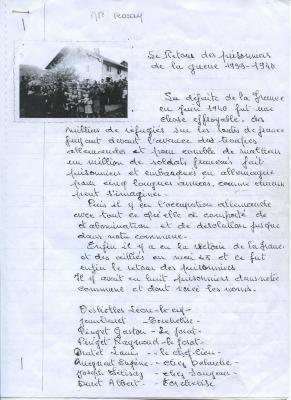 Le Retour des prisonniers
de la guerre 1939-1940
La défaite de la France
en Juin 1940 fut une
chose effroyable, des
milliers de réfugiés sur les routes de france
fuyant devant l'avance des troupes
allemandes et pour comble de malheur
un million de soldats français fait
prisonniers et embarqués en allemagne
pour cinq longues années, comme chacun
peut s'imaginer.
Puis il y eu l'occupation allemande
avec tout ce qu'elle a comporté de
d'abomination et de désolation jusque
dans notre commune.
Enfin il y a eu la victoire de la france
et des alliés en mai 45 et ce fut
enfin le retour des prisonniers
Il y avait eu huit prisonniers dans notre
commune et dont voici les noms.
Léon
Pinget Gaston - Le forat
Pinget Raymond - le forat
Louis - le chef-lieu
Eugène - chez
Joseph - chez
Albert -